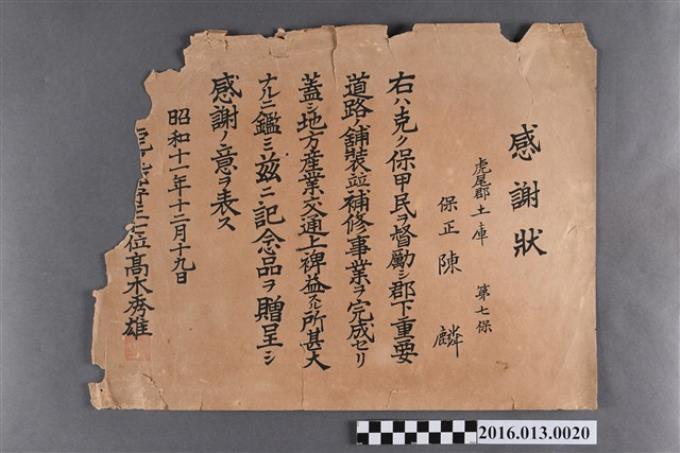 感謝狀
虎尾郡土庫 第七保
保正 陳麟
右ハ克ク保甲民ヲ督勵シ郡下重要
道路ノ舗裝竝補修事業ヲ完成セリ
蓋シ地方產業交通上裨益スル所甚大
ナルニ鑑ミ茲ニ記念品ヲ贈呈シ
感謝ノ意ヲ表ス
昭和十一年十二月十九日
位髙木秀雄
2016.013.0020